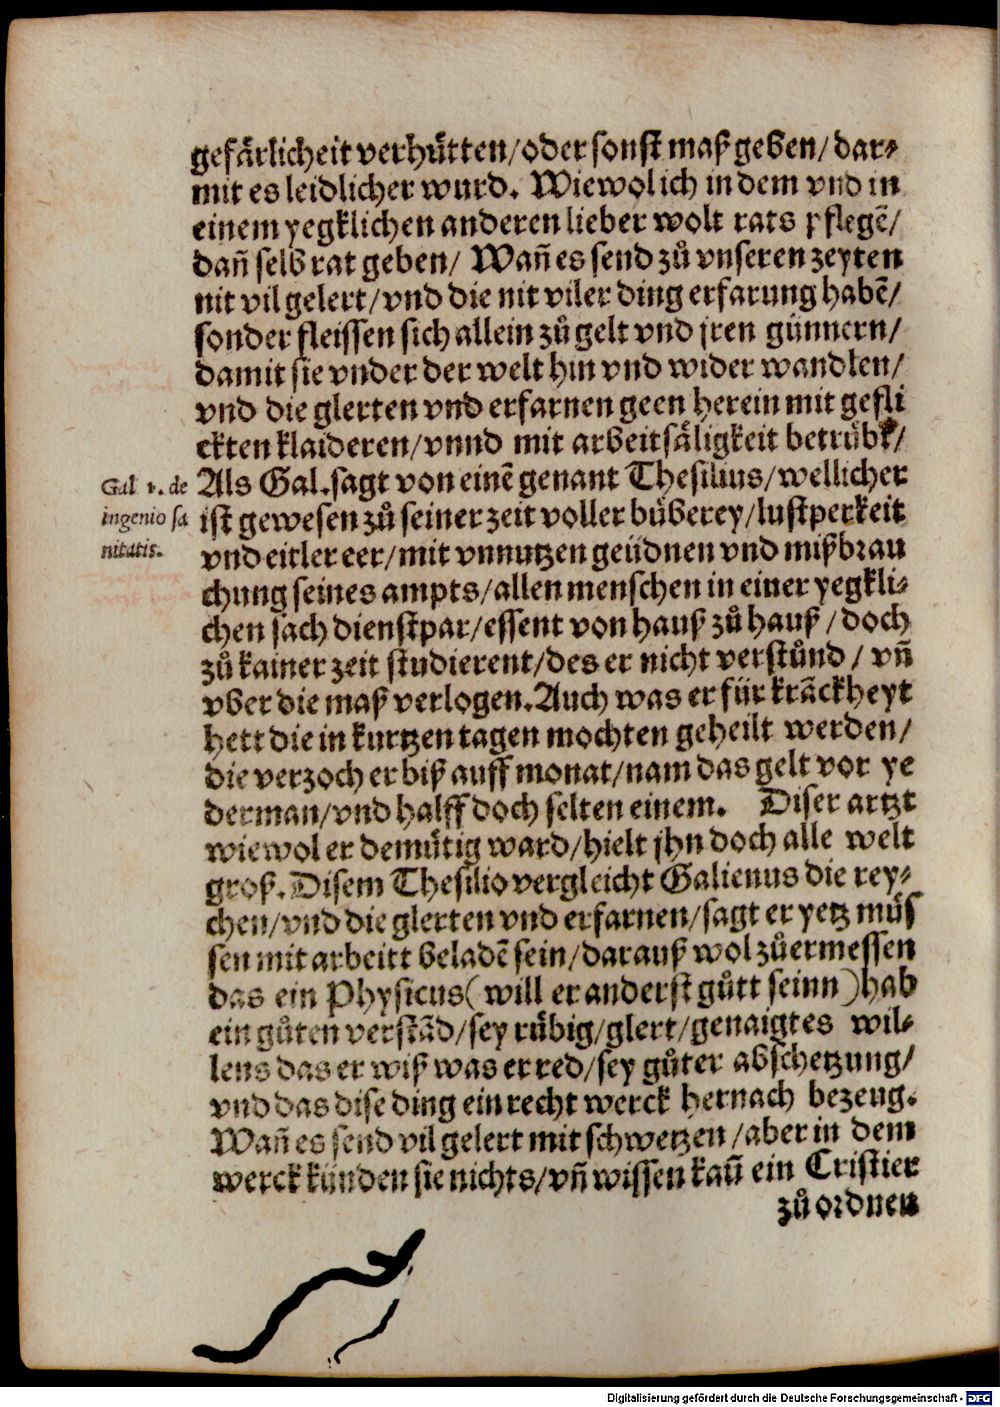 gefärlicheit verhütten/oder sonst maß geben/dar⸗
mit es leidlicher wurd. Wiewol ich in dem vnd in
einem yegklichen anderen lieber wolt rats pflegē/
dañ selb rat geben/ Wañ es send zů vnseren zeyten
nit vil gelert/vnd die nit viler ding erfarung habē/
sonder fleissen sich allein zů gelt vnd jren günnern/
damit sie vnder der welt hin vnd wider wandlen/
vnd die glerten vnd erfarnen geen herein mit gefli
ckten klaideren/vnnd mit arbeitsäligkeit betrübt/
Als Gal.sagt von einē genant Thesilius/wellicher
Gal 1. de
ingenio sa
nitatis.
ist gewesen zů seiner zeit voller büberey/lustperkeit
vnd eitler eer/mit vnnutzen geüdnen vnd mißbrau
chung seines ampts/allen menschen in einer yegkli⸗
chen sach dienstpar/essent von hauß zů hauß/doch
zů kainer zeit studierent/des er nicht verstůnd/ vñ
vber die maß verlogen.Auch was er für krāckheyt
hett die in kurtzen tagen mochten geheilt werden/
die verzoch er biß auff monat/nam das gelt vor ye
derman/vnd halff doch selten einem. Diser artzt
wiewol er demütig ward/hielt jhn doch alle welt
groß.Disem Thesilio vergleicht Galienus die rey⸗
chen/vnd die glerten vnd erfarnen/sagt er yetz müs
sen mit arbeitt beladē sein/darauß wol zůermessen
das ein Physicus(will er anderst gůtt seinn)hab
ein gůten verstād/sey rübig/glert/genaigtes wil⸗
lens das er wiß was er red/sey gůter abschetzung/
vnd das dise ding ein recht werck hernach bezeug.
Wañ es send vil gelert mit schwetzen/aber in dem
werck künden sie nichts/vñ wissen kaū ein Cristier
zů ordnen
Digitalisierung gefördert durch die Deutsche Forschungsgemeinschaft - DFG